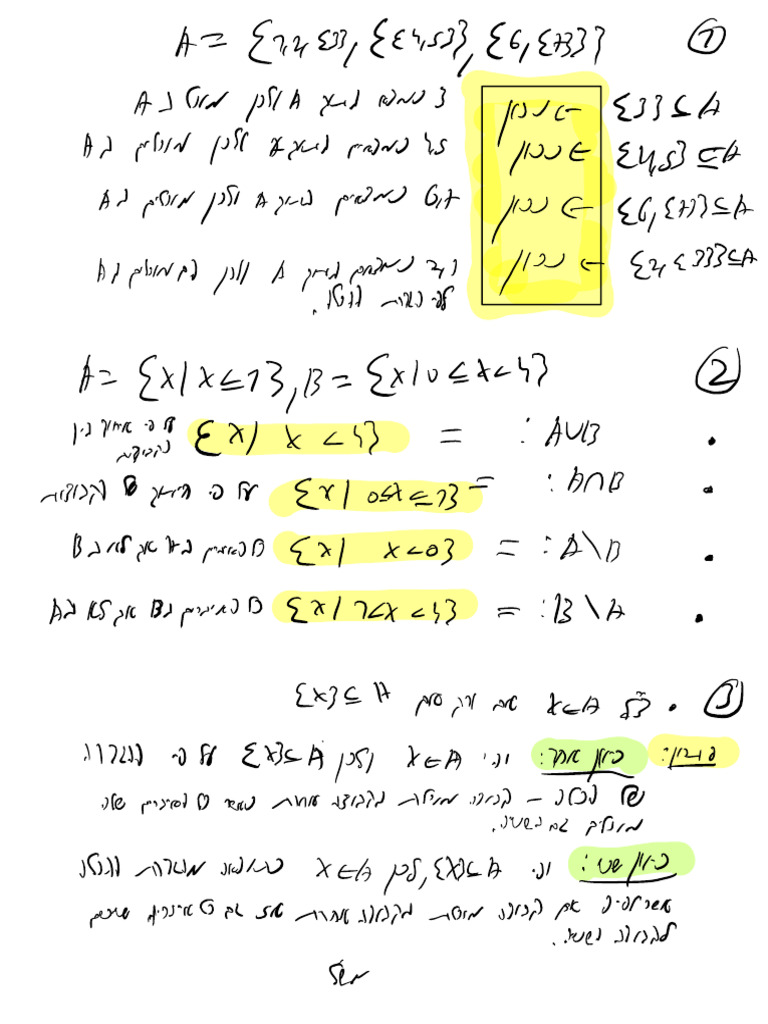 ① A = {1,2,{3},{{4,5}},{6,{7}}}
{3}⊆A → נכון 3 נמצא בתוך A ולכן מוכל ב A
{4,5}⊆A → נכון 4,5 נמצאים בתוך A ולכן מוכלים ב A
{6,{7}}⊆A → נכון 6,7 נמצאים בתוך A ולכן מוכלים ב A
{2,{3}}⊆A → נכון נמצאים בתוך A ולכן גם מוכלים ב A
לפי הגדרת ההכלה.
② A = {x|x≤1}, B = {x|0≤x<4}
• A∪B : = {x| x<4} על פי איחוד בין
הקבוצות
• A∩B : = {x| 0≤x≤1} על פי חיתוך של הקבוצות
• A\B : = {x| x<0} האיברים ב A אך לא ב B
• B\A : = {x| 1<x<4} האיברים ב B אך לא ב A
③ • x∈A אם ורק אם {x}⊆A
פתרון: כיוון אחד: יהי x∈A ולכן {x}⊆A על פי ההגדרה
של הכלה – קבוצה מוכלת בקבוצה אחרת כאשר כל האיברים שלה
מוכלים גם בשניה.
כיוון שני: יהי {x}⊆A, לכן x∈A כתוצאה מהגדרת ההכלה
אם קבוצה מוכלת בקבוצה אחרת אז גם כל איבריה שייכים
לקבוצה השניה.
משל